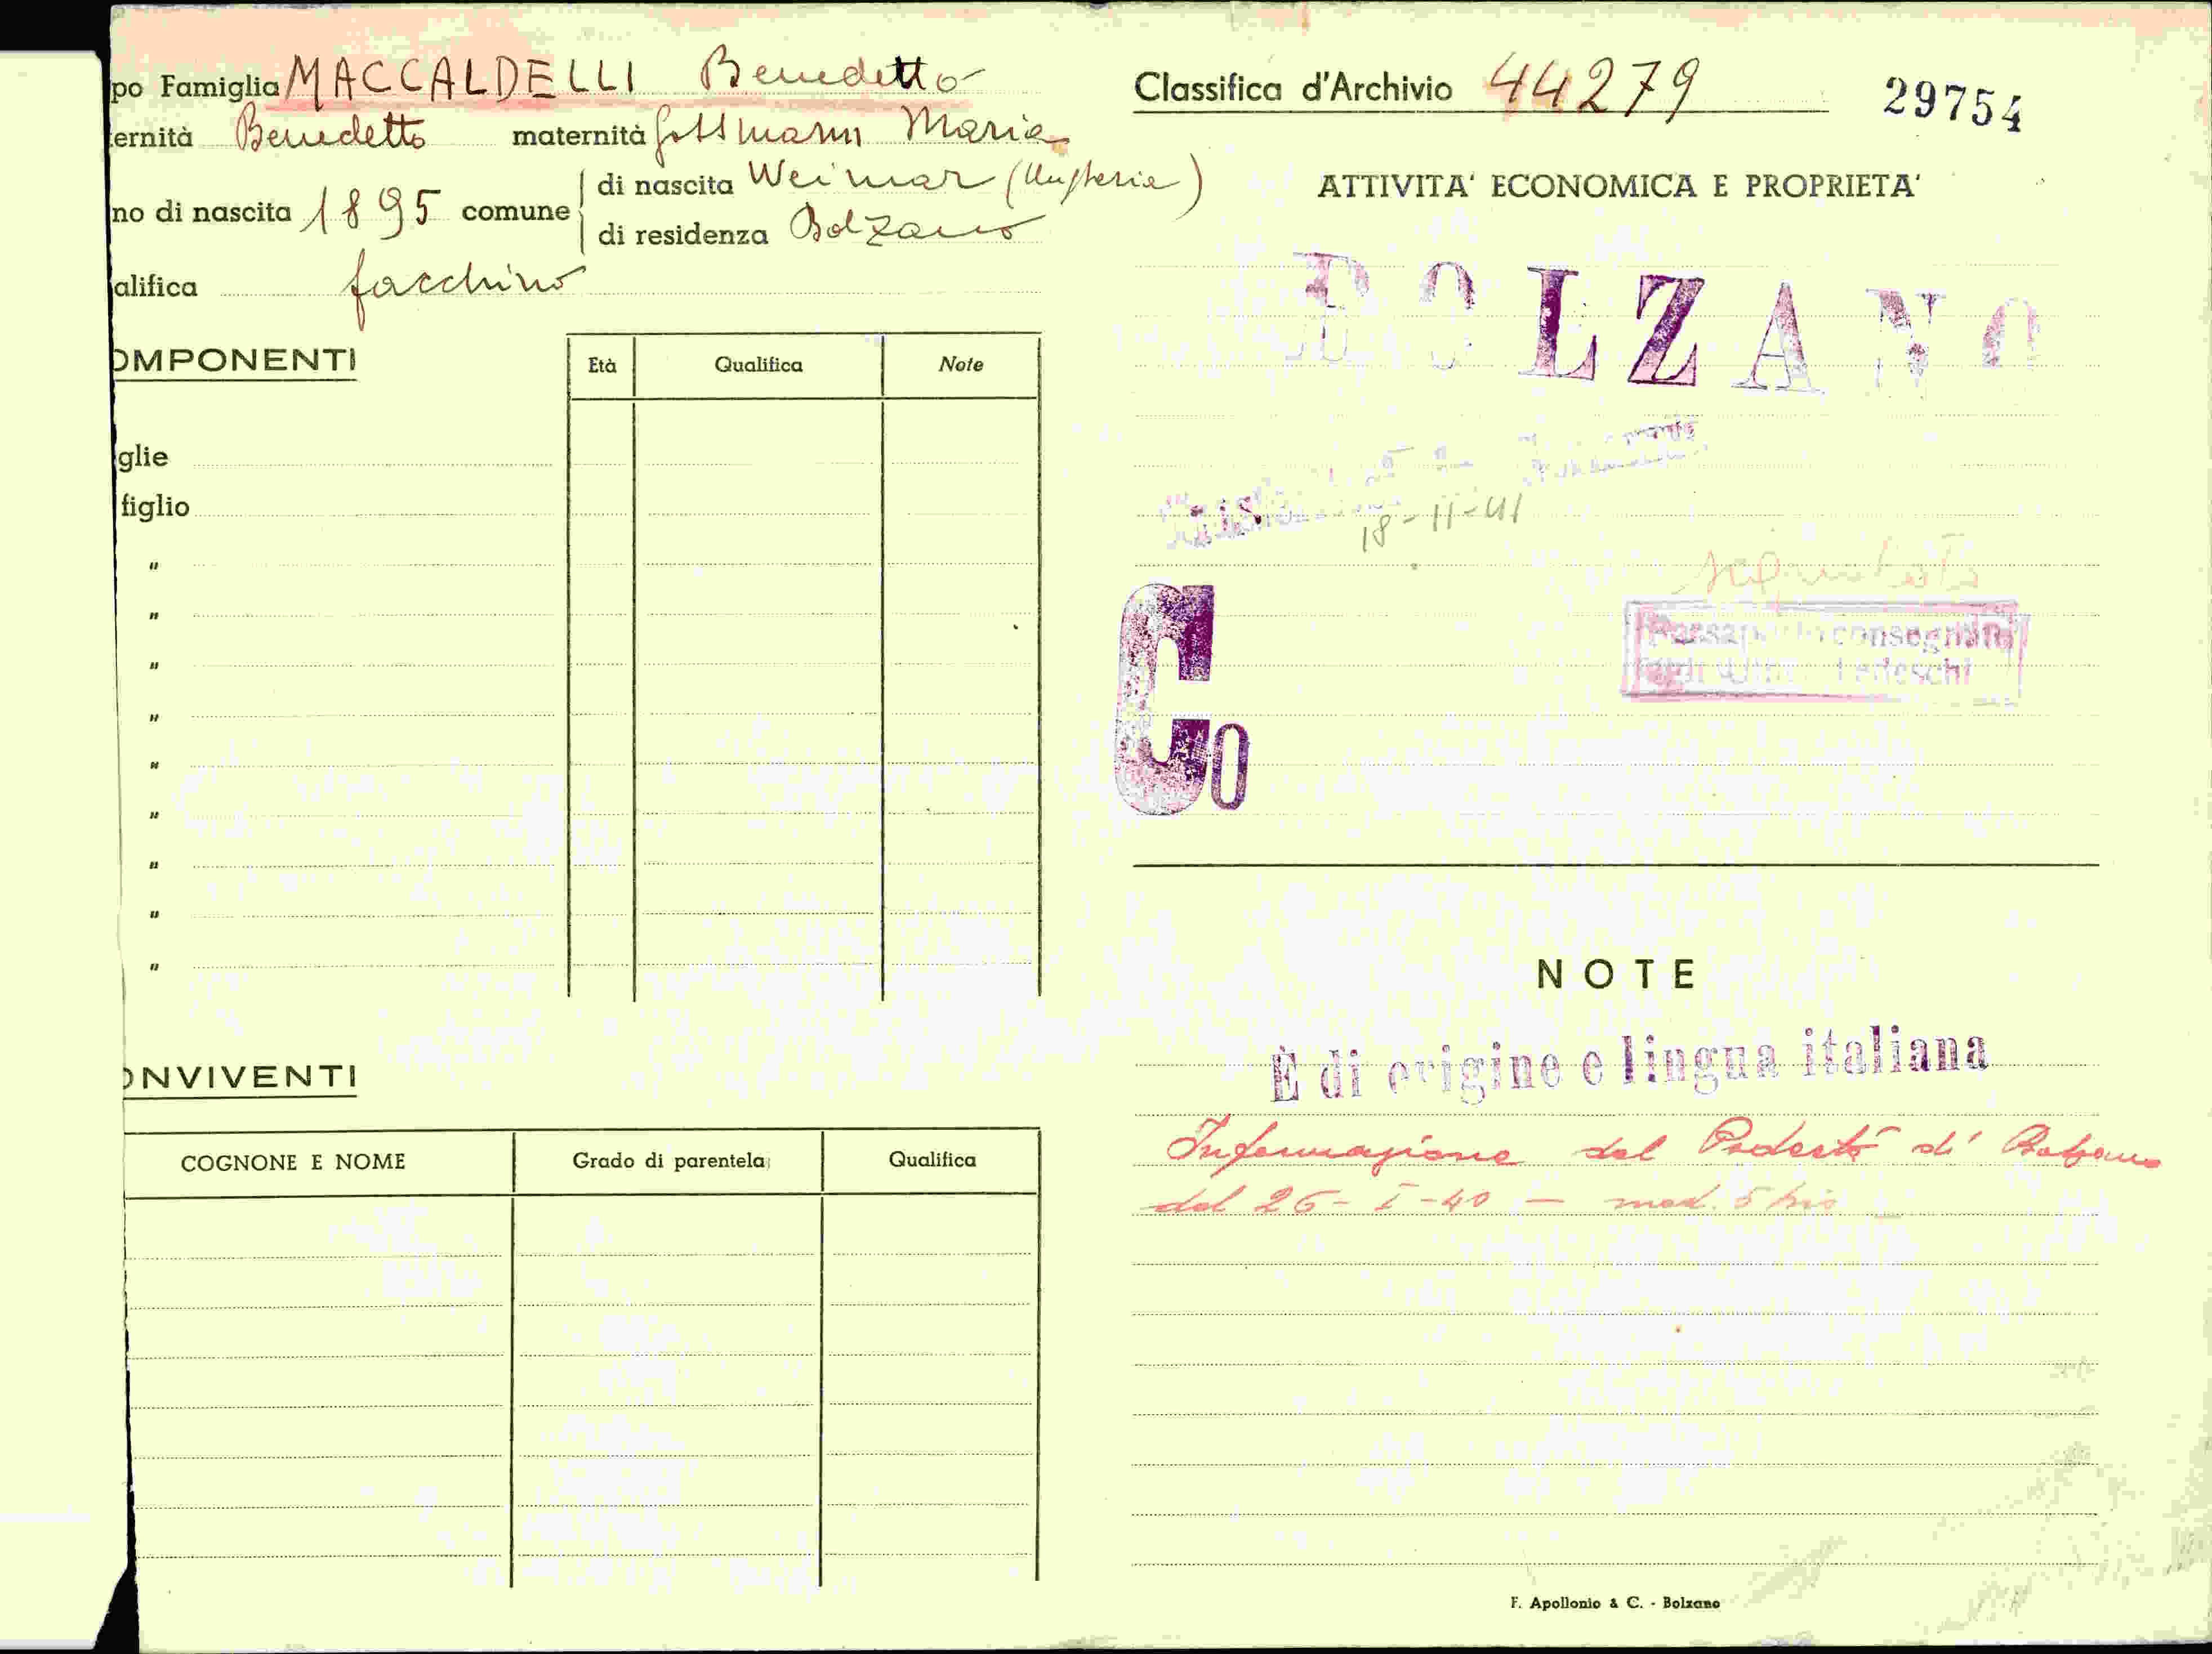 po Famiglia MACCALDELLI Benedetto
ernità Benedetto maternità Gottmann Maria
no di nascita 1895 comune di nascita Weimar (Ungheria)
di residenza Bolzano
alifica facchino
OMPONENTI
Età Qualifica Note
glie
figlio
"
"
"
"
"
"
"
"
"
ONVIVENTI
COGNONE E NOME Grado di parentela Qualifica
Classifica d'Archivio 44279 29754
ATTIVITA' ECONOMICA E PROPRIETA'
BOLZANO
18-11-41
Passaporto consegnato
Tedeschi
Co
NOTE
È di origine e lingua italiana
Informazione del Podestà di Bolzano
del 26-I-40 — mod. 5 bis
F. Apollonio & C. - Bolzano